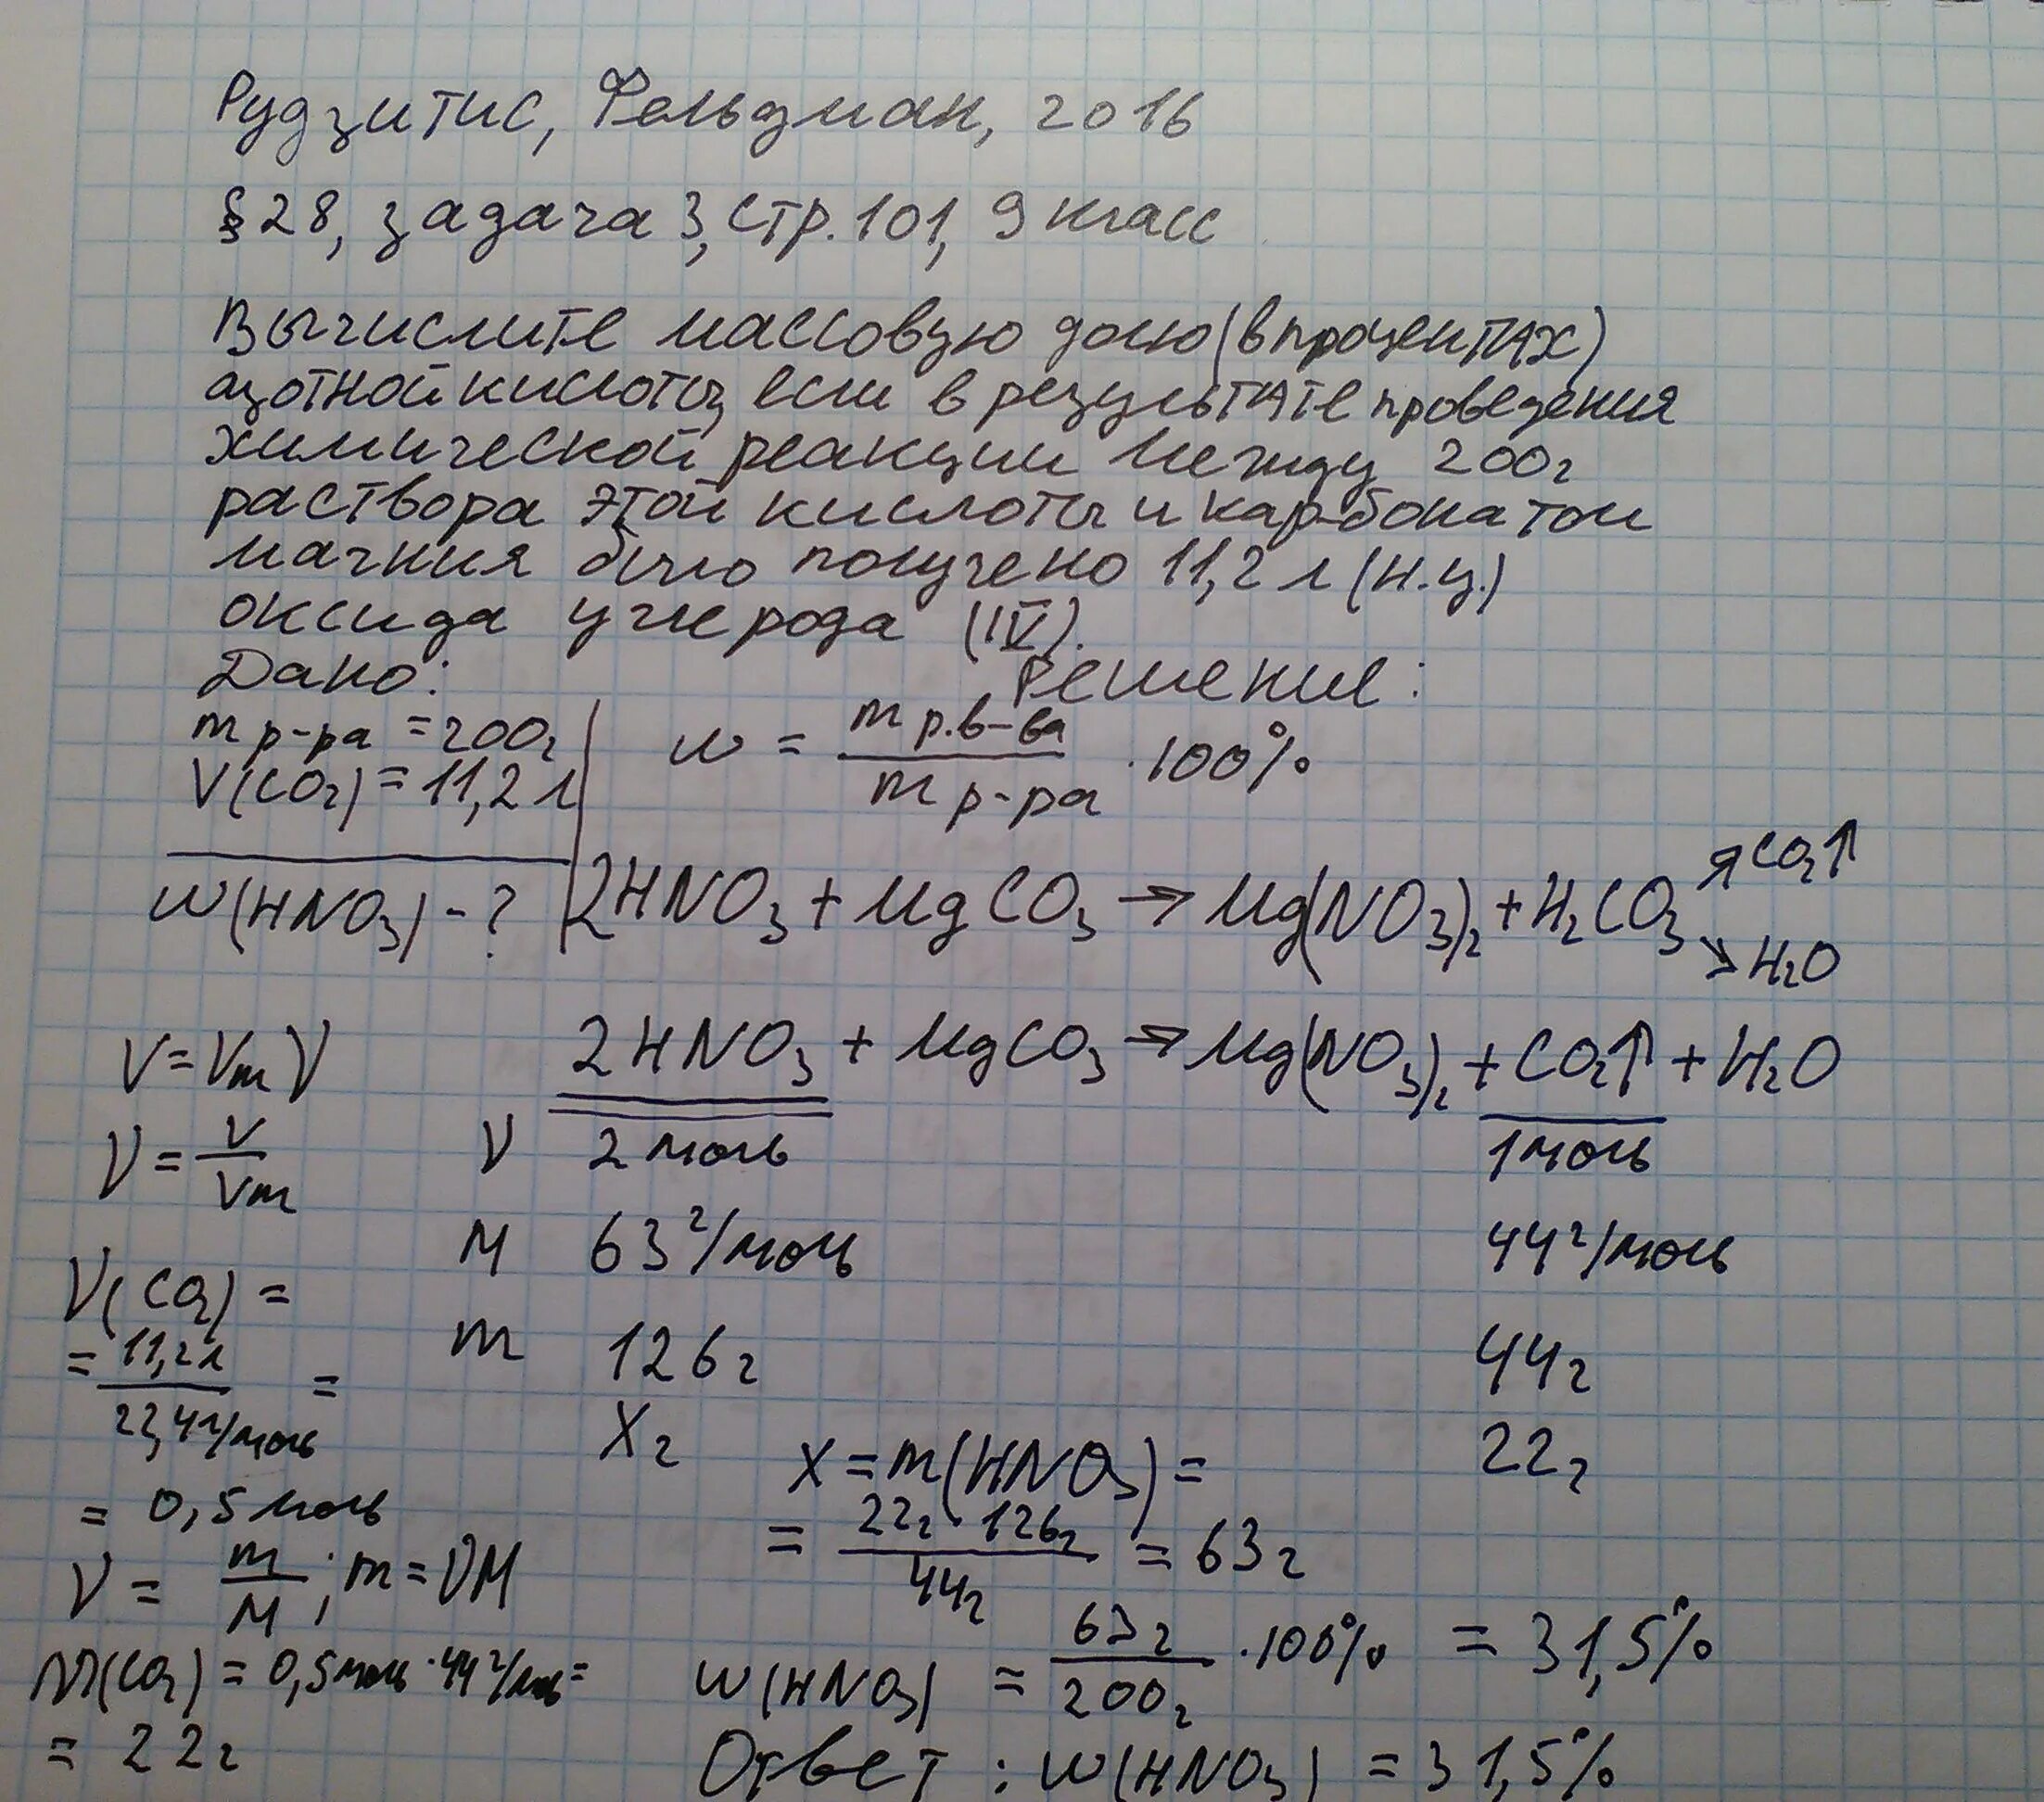 Рудзитис, Фельдман, 2016
§28, задача 3, стр. 101, 9 класс
Вычислите массовую долю (в процентах)
азотной кислоты, если в результате проведения
химической реакции между 200г
раствора этой кислоты и карбонатом
магния было получено 11,2 л (н.у.)
оксида углерода (IV).
Дано:
m р-ра = 200г
V(CO₂) = 11,2 л
w(HNO₃) - ?
Решение:
w = m р.в-ва / m р-ра · 100%
2HNO₃ + MgCO₃ → Mg(NO₃)₂ + H₂CO₃ ↗ CO₂↑ ↘ H₂O
2HNO₃ + MgCO₃ → Mg(NO₃)₂ + CO₂↑ + H₂O
ν 2 моль 1 моль
M 63 г/моль 44 г/моль
m 126 г 44 г
X г 22 г
V = Vm ν
ν = V / Vm
ν(CO₂) =
= 11,2 л / 22,4 л/моль =
= 0,5 моль
ν = m / M ; m = νM
m(CO₂) = 0,5 моль · 44 г/моль =
= 22 г
X = m(HNO₃) =
= 22 г · 126 г / 44 г = 63 г
w(HNO₃) = 63 г / 200 г · 100% = 31,5%
Ответ : w(HNO₃) = 31,5%